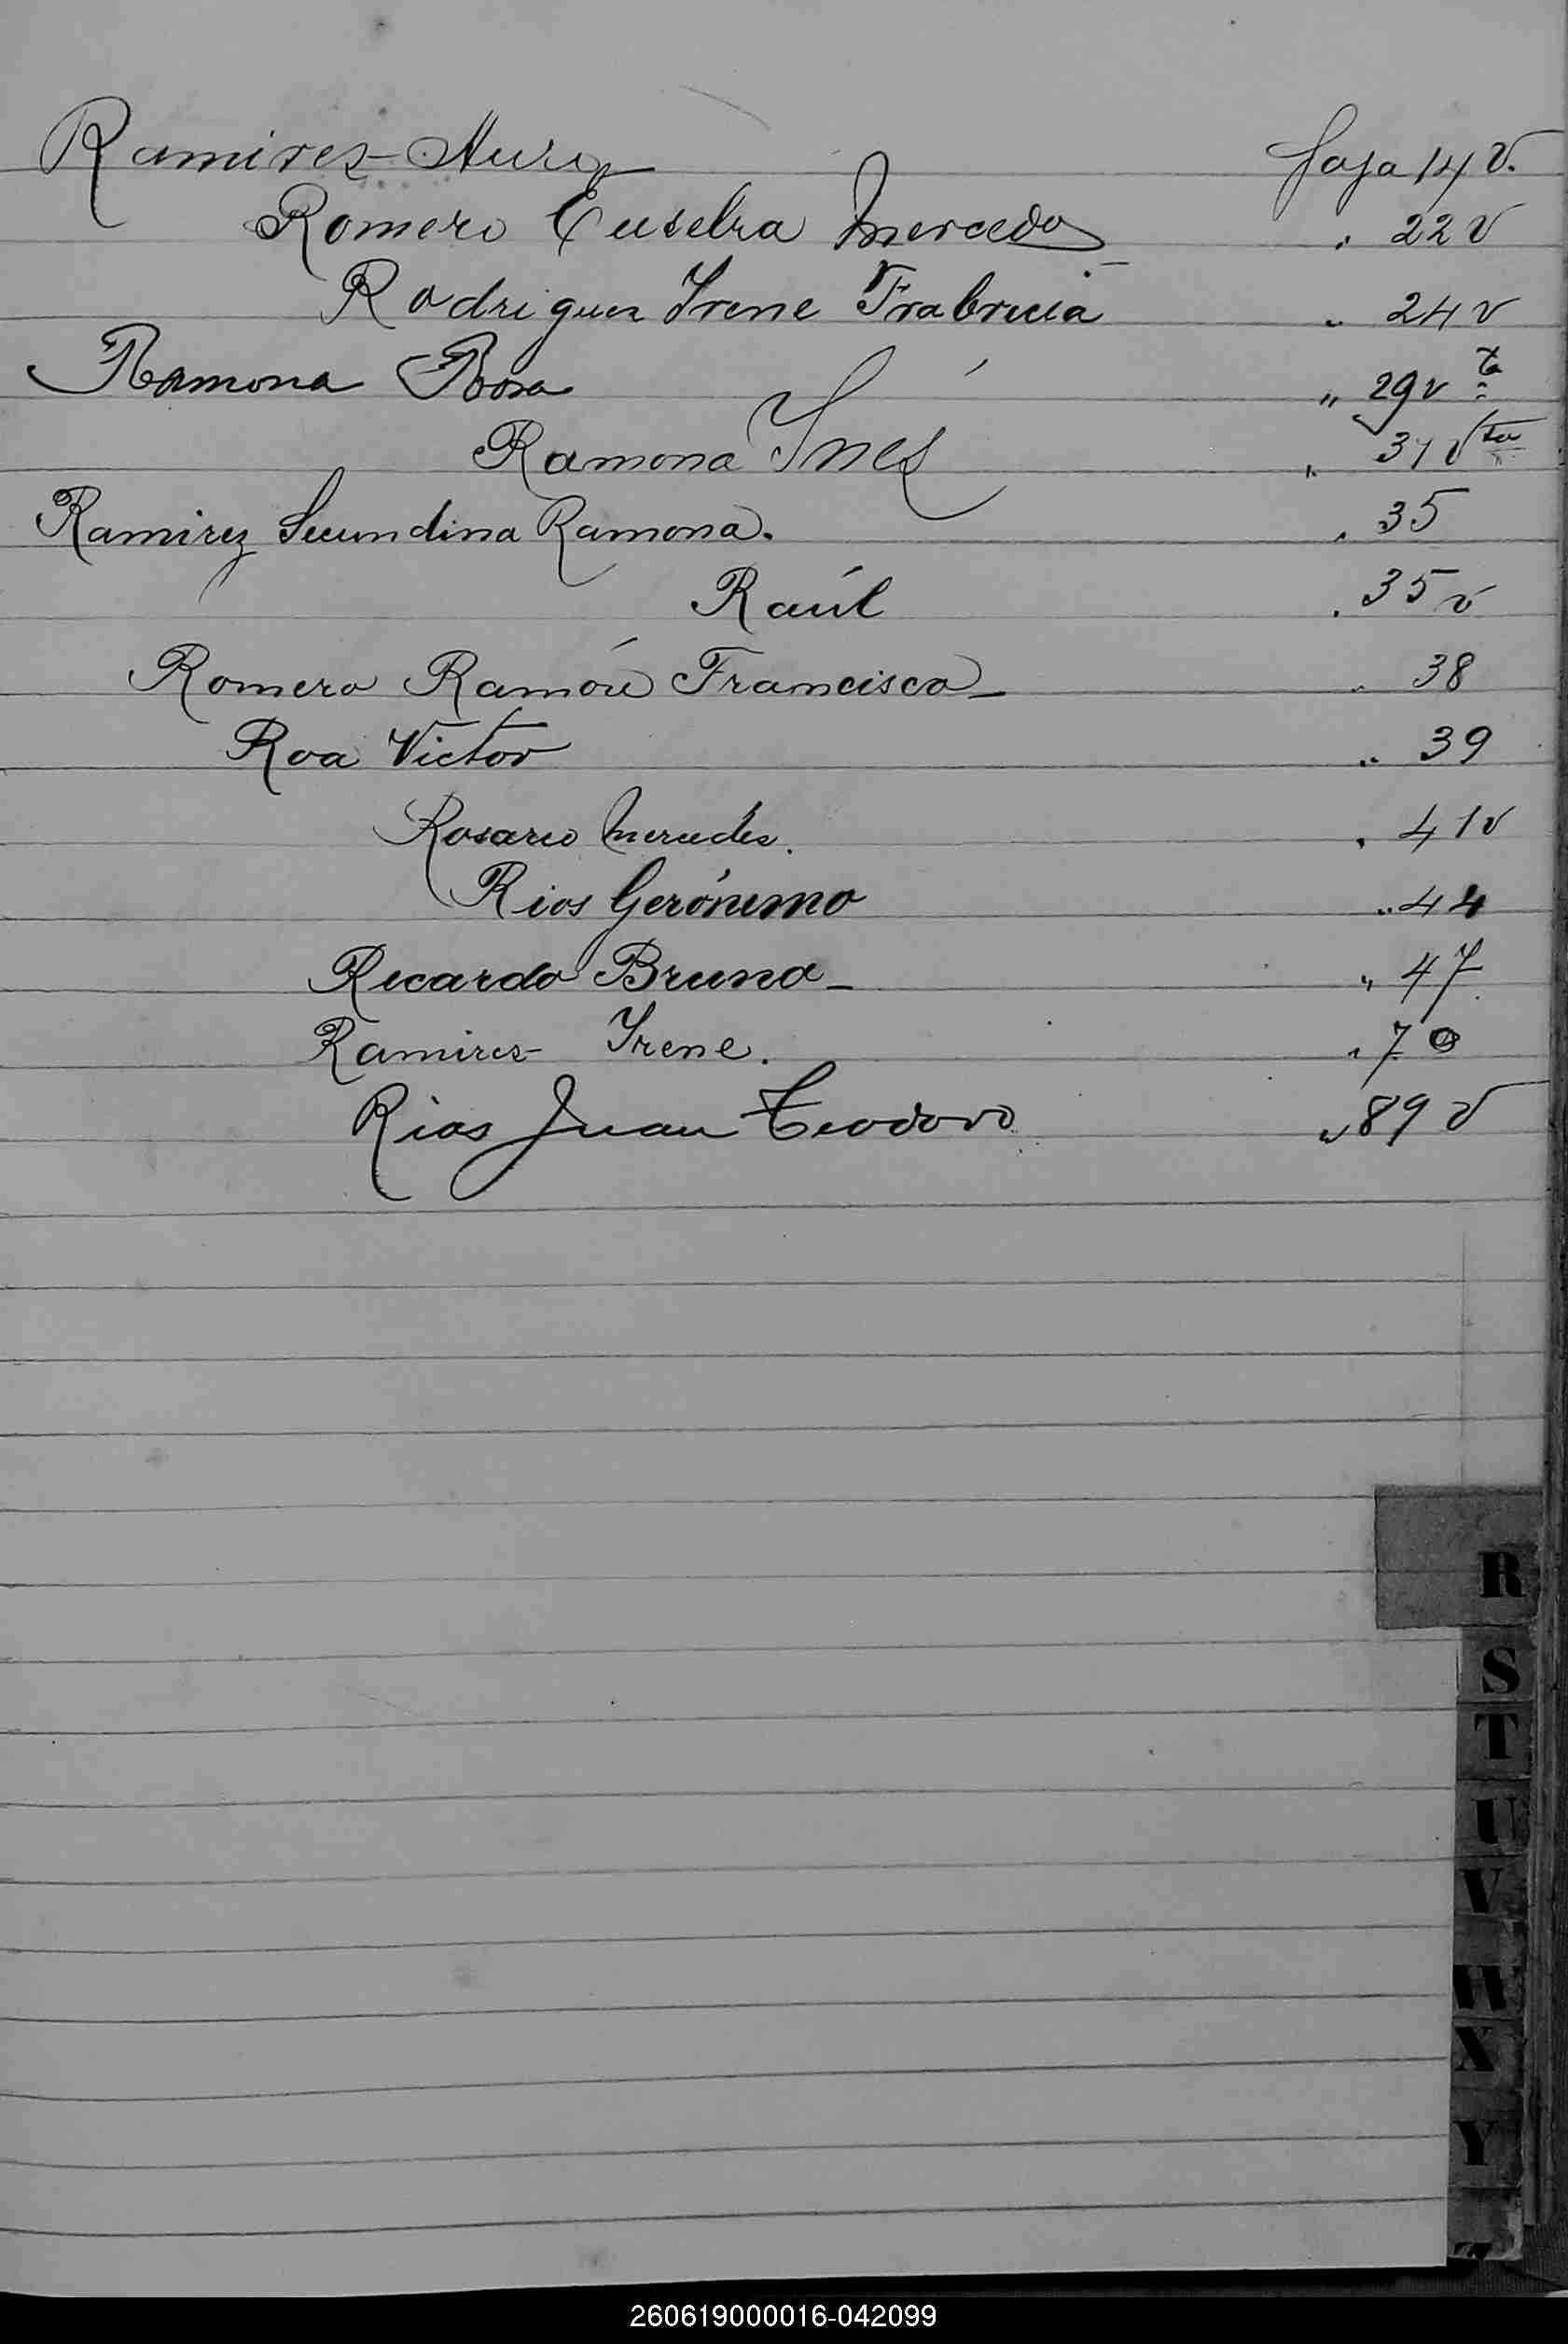 Ramires - Aura foja 14 v.
Romero Eusebia Mercedes „ 22 v
Rodriguez Yrene Frabricia „ 24 v
Ramona Rosa „ 29 v ta
Ramona Ynés „ 31 v ta
Ramirez Secundina Ramona. „ 35
Raúl „ 35 v
Romero Ramón Francisco - „ 38
Roa Victor „ 39
Rosario Mercedes. „ 41 v
Rios Gerónimo „ 44
Ricardo Bruno - „ 47
Ramires - Yrene. „ 70
Rios Juan Teodoro „ 89 v
R
S
T
U
V
W
X
Y
260619000016-042099